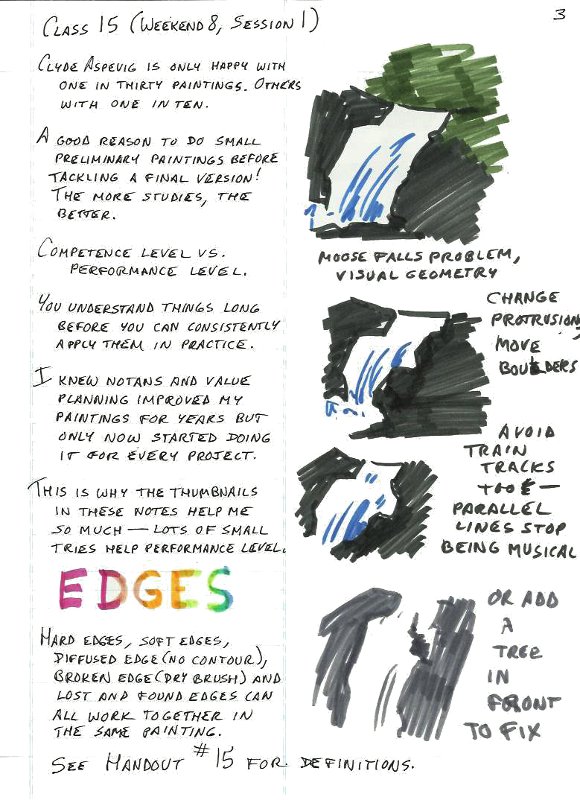 CLASS 15 (WEEKEND 8, SESSION 1)
3
CLYDE ASPEVIG IS ONLY HAPPY WITH
ONE IN THIRTY PAINTINGS. OTHERS
WITH ONE IN TEN.
A GOOD REASON TO DO SMALL
PRELIMINARY PAINTINGS BEFORE
TACKLING A FINAL VERSION!
THE MORE STUDIES, THE
BETTER.
COMPETENCE LEVEL VS.
PERFORMANCE LEVEL.
YOU UNDERSTAND THINGS LONG
BEFORE YOU CAN CONSISTENTLY
APPLY THEM IN PRACTICE.
I KNEW NOTANS AND VALUE
PLANNING IMPROVED MY
PAINTINGS FOR YEARS BUT
ONLY NOW STARTED DOING
IT FOR EVERY PROJECT.
THIS IS WHY THE THUMBNAILS
IN THESE NOTES HELP ME
SO MUCH — LOTS OF SMALL
TRIES HELP PERFORMANCE LEVEL.
EDGES
HARD EDGES, SOFT EDGES,
DIFFUSED EDGE (NO CONTOUR),
BROKEN EDGE (DRY BRUSH) AND
LOST AND FOUND EDGES CAN
ALL WORK TOGETHER IN
THE SAME PAINTING.
SEE HANDOUT #15 FOR DEFINITIONS.
MOOSE FALLS PROBLEM,
VISUAL GEOMETRY
CHANGE
PROTRUSIONS,
MOVE
BOULDERS
AVOID
TRAIN
TRACKS
TOO —
PARALLEL
LINES STOP
BEING MUSICAL
OR ADD
A
TREE
IN
FRONT
TO FIX